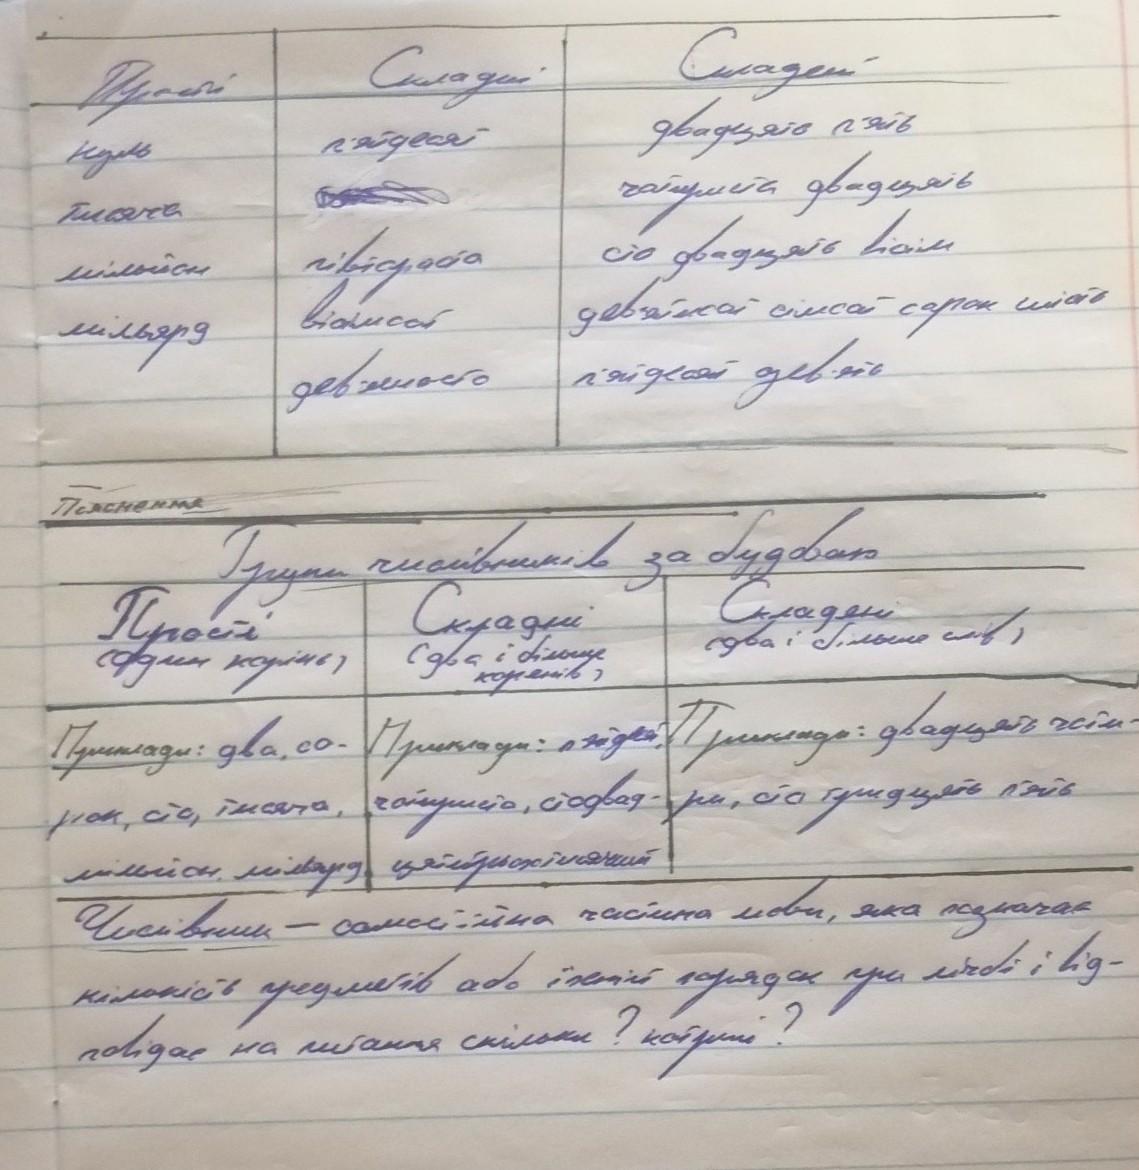 Прості Складні Складені
нуль п'ятдесят двадцять п'ять
тисяча чотириста двадцять
мільйон півтораста сто двадцять вісім
мільярд вісімсот дев'ятсот сімсот сорок шість
дев'яносто п'ятдесят дев'ять
Пояснення
Групи числівників за будовою
Прості Складні Складені
(один корінь) (два і більше (два і більше слів)
коренів)
Приклади: два, со- Приклади: п'ятдесят, Приклади: двадцять чоти-
рок, сто, тисяча, чотириста, стодвад- ри, сто тридцять п'ять
мільйон, мільярд цятитрьохтисячний
Числівник – самостійна частина мови, яка означає
кількість предметів або їхній порядок при лічбі і від-
повідає на питання скільки? котрий?